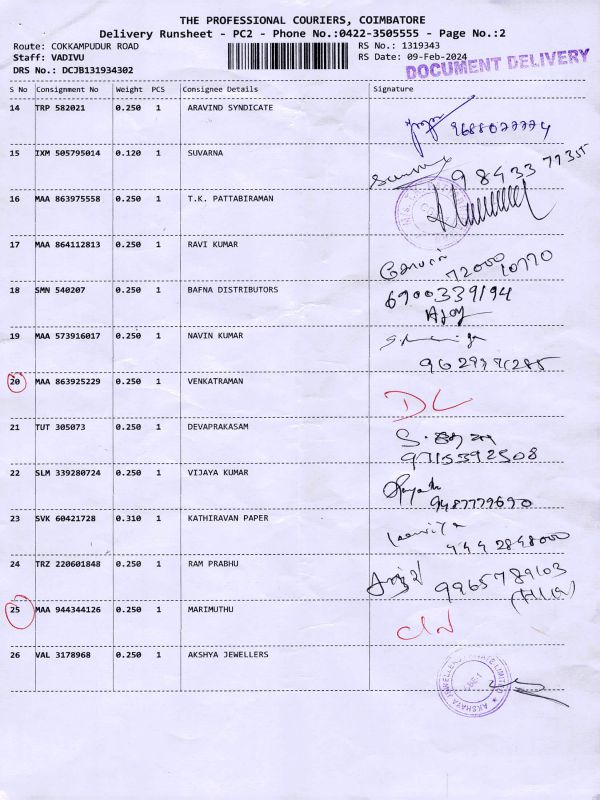 THE PROFESSIONAL COURIERS, COIMBATORE
Delivery Runsheet - PC2 - Phone No.:0422-3505555 - Page No.:2
Route: COKKAMPUDUR ROAD RS No.: 1319343
Staff: VADIVU RS Date: 09-Feb-2024
DRS No.: DCJB131934302 DOCUMENT DELIVERY
S No Consignment No Weight PCS Consignee Details Signature
14 TRP 582021 0.250 1 ARAVIND SYNDICATE
15 IXM 505795014 0.120 1 SUVARNA
98433 77355
16 MAA 863975558 0.250 1 T.K. PATTABIRAMAN
17 MAA 864112813 0.250 1 RAVI KUMAR
72000 10770
18 SMN 540207 0.250 1 BAFNA DISTRIBUTORS 6900339194
Ajay
19 MAA 573916017 0.250 1 NAVIN KUMAR
20 MAA 863925229 0.250 1 VENKATRAMAN
DL
21 TUT 305073 0.250 1 DEVAPRAKASAM
9715392508
22 SLM 339280724 0.250 1 VIJAYA KUMAR
9487779670
23 SVK 60421728 0.310 1 KATHIRAVAN PAPER
444 2848000
24 TRZ 220601848 0.250 1 RAM PRABHU
9965789103
25 MAA 944344126 0.250 1 MARIMUTHU
26 VAL 3178968 0.250 1 AKSHYA JEWELLERS
AKSHAYA JEWELLERS PRIVATE LIMITED
CBE-1